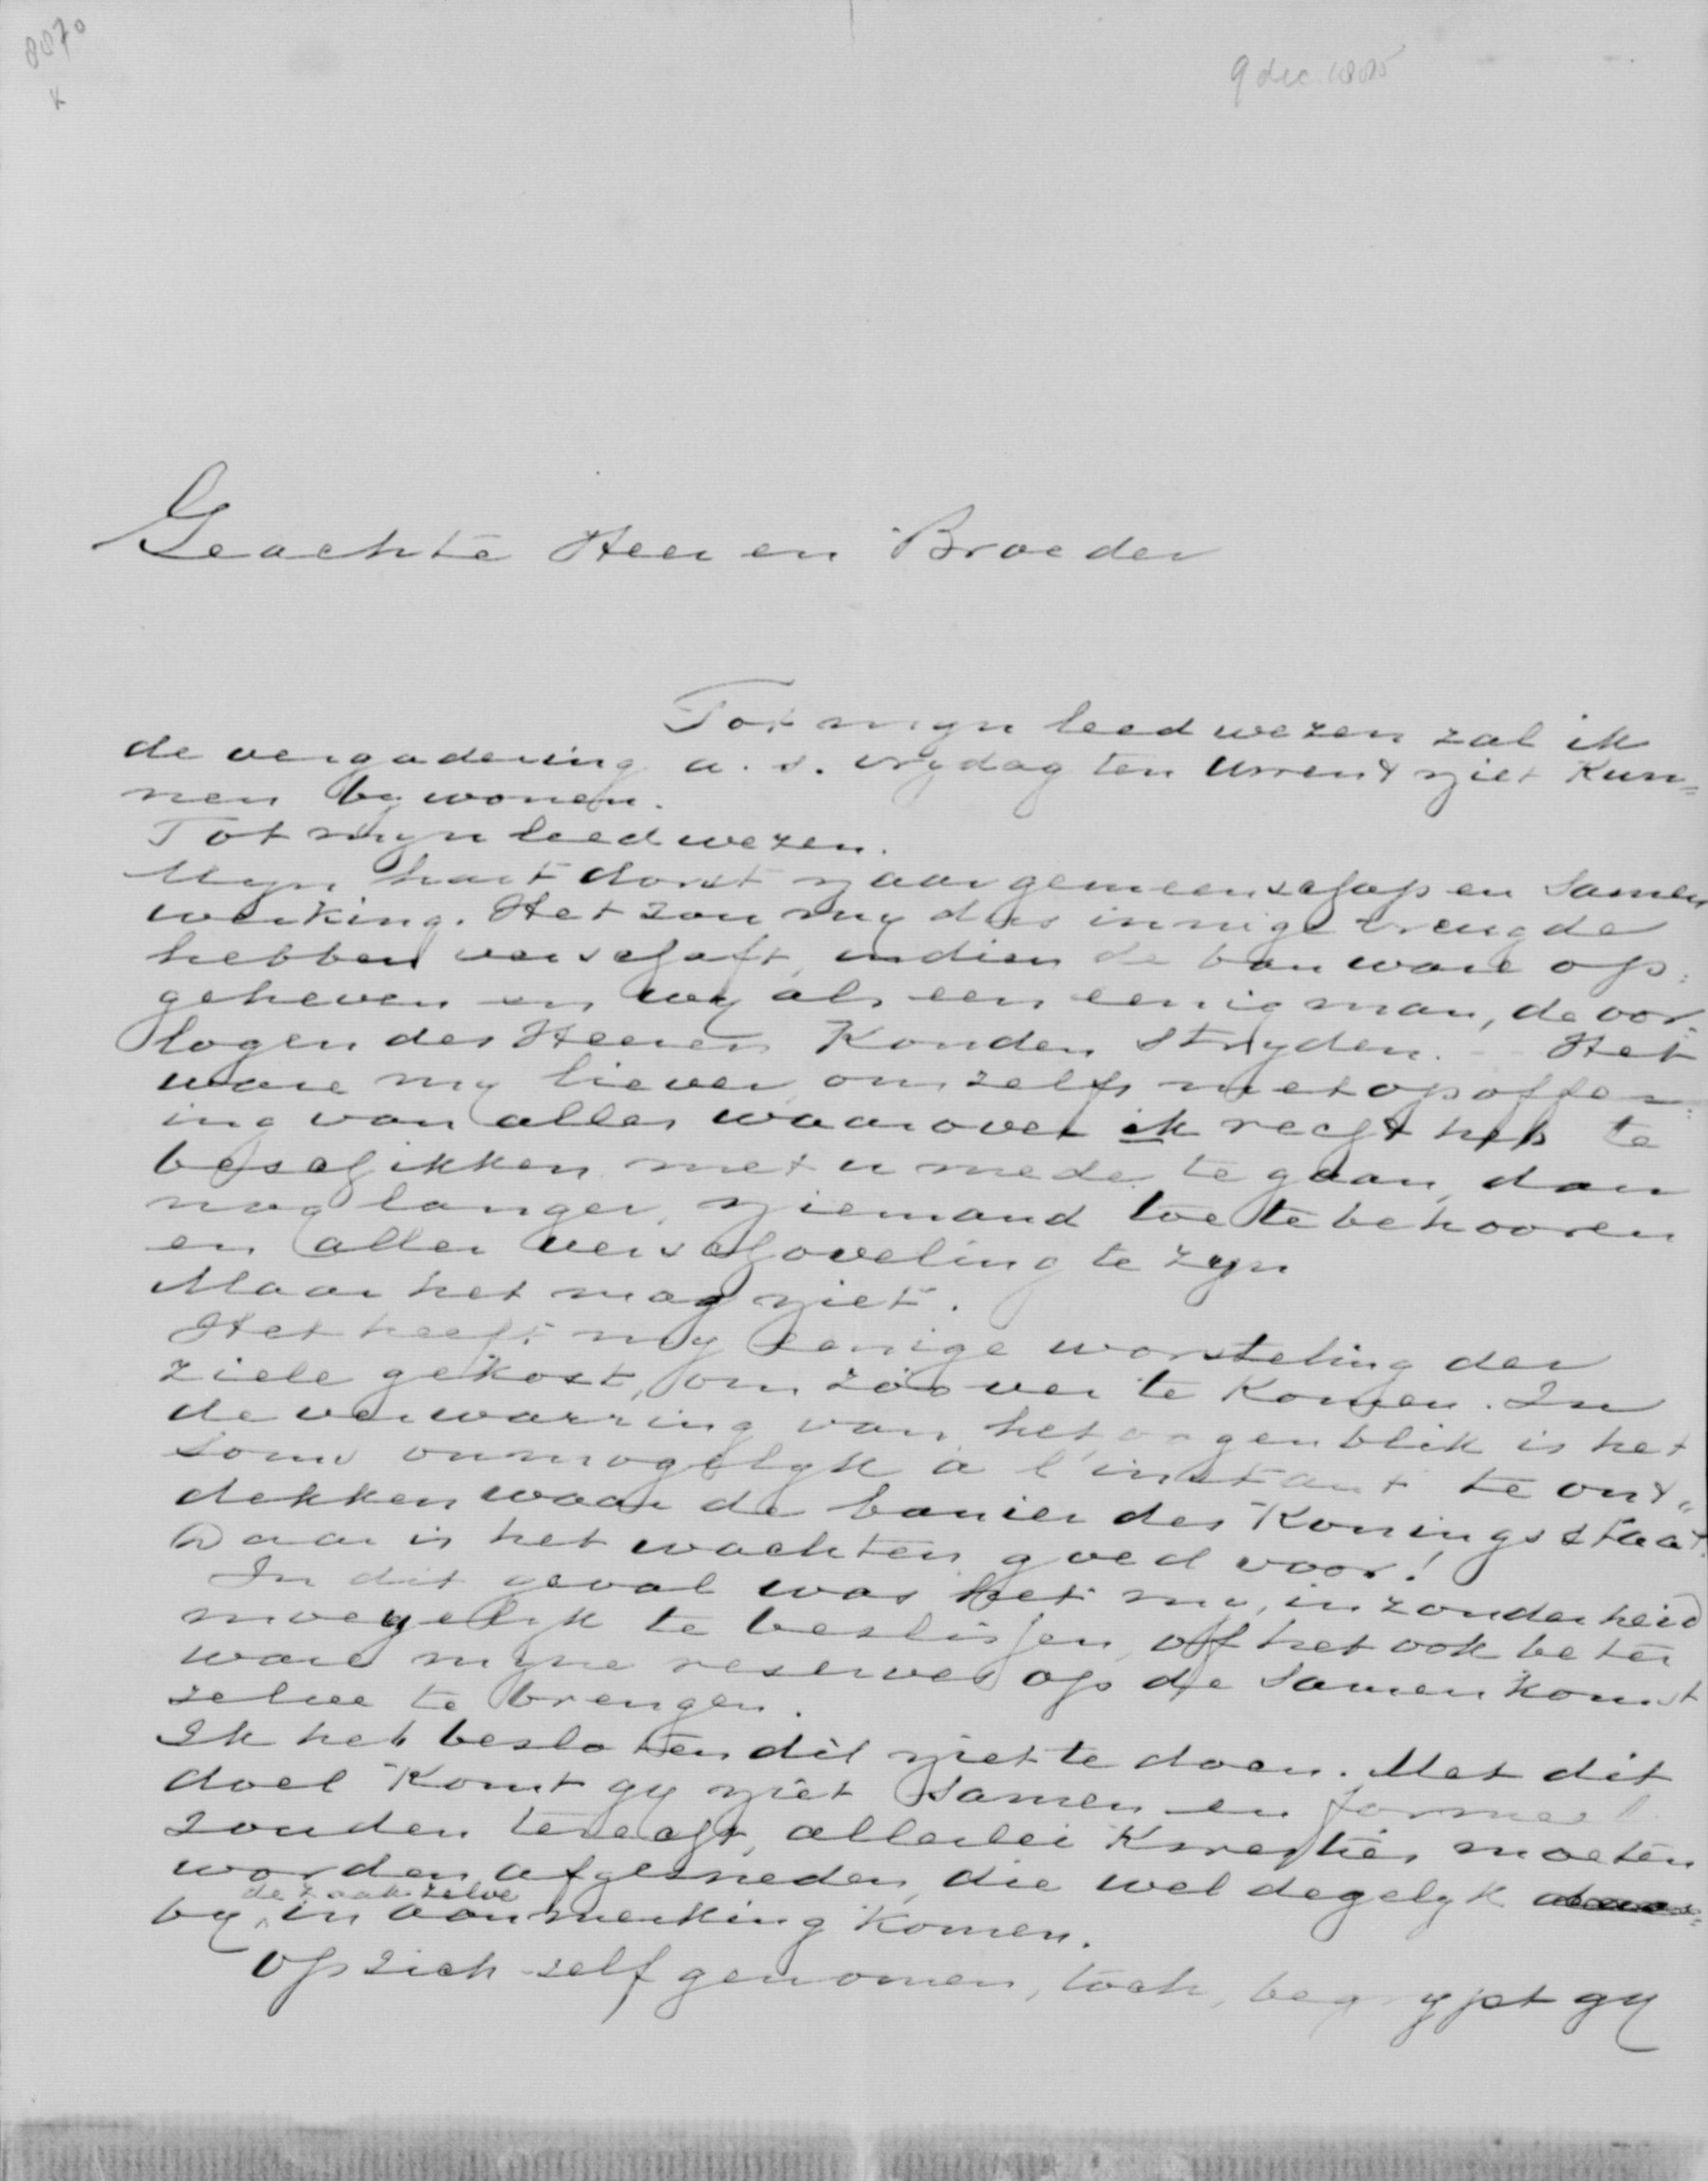 8870
x
9 dec. 1885
Geachte Heer en Broeder
Tot mijn leedwezen zal ik
de vergadering a. s. vrydag ten Uwent niet kun=
nen bywonen.
Tot myn leedwezen.
Myn hart dorst naar gemeenschap en samen
werking. Het zou my dus innige vreugde
hebben verschaft, indien de ban ware op=
geheven en wy als een eenig man, de oor=
logen des Heeren konden stryden. - Het
ware my liever om zelfs met opoffer=
ing van alles waarover ik recht heb te
beschikken met u mede te gaan, dan
nog langer, niemand toe te behooren
en aller verschoveling te zyn
Maar het mag niet.
Het heeft my eenige worsteling der
ziele gekost, om zóóver te komen. In
de verwarring van het oogenblik is het
soms onmogelyk à l'instant te ont=
dekken waar de banier des Konings staat.
Daar is het wachten goed voor!
In dit geval was het my, inzonderheid
moeyelyk te beslissen, of het ook beter
ware myne reserves op de samenkomst
zelve te brengen.
Ik heb besloten dit niet te doen. Met dit
doel komt gy niet samen en formeel
zouden terecht, allerlei kwesties moeten
worden afgesneden, die wel degelyk
by de zaak zelve in aanmerking komen.
Op zich-zelf genomen, toch, begrypt gy